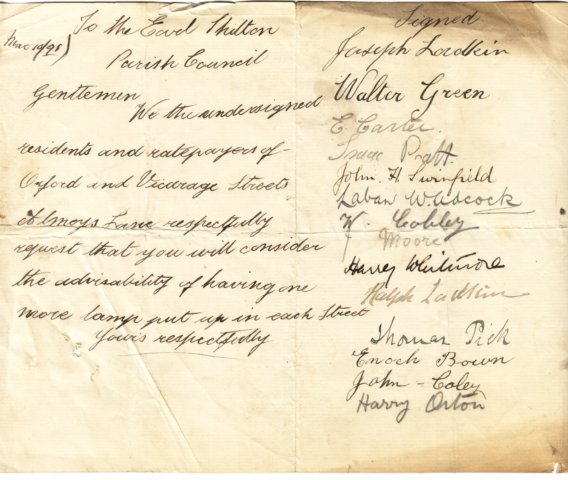 Mar 10/98)
To the Earl Shilton
Parish Council
Gentlemen
We the undersigned
residents and ratepayers of
Oxford and Vicarage Streets
Almeys Lane respectfully
request that you will consider
the advisability of having one
more lamp put up in each Street
Yours respectfully
Signed
Joseph Ladkin
Walter Green
E. Carter
Isaac Pratt.
John. H Swinfield
Laban Willcock
W. Cobley
J Moore
Harry Whitmore
Ralph Ladkin
Thomas Pick
Enoch Bown
John - Coley
Harry Orton